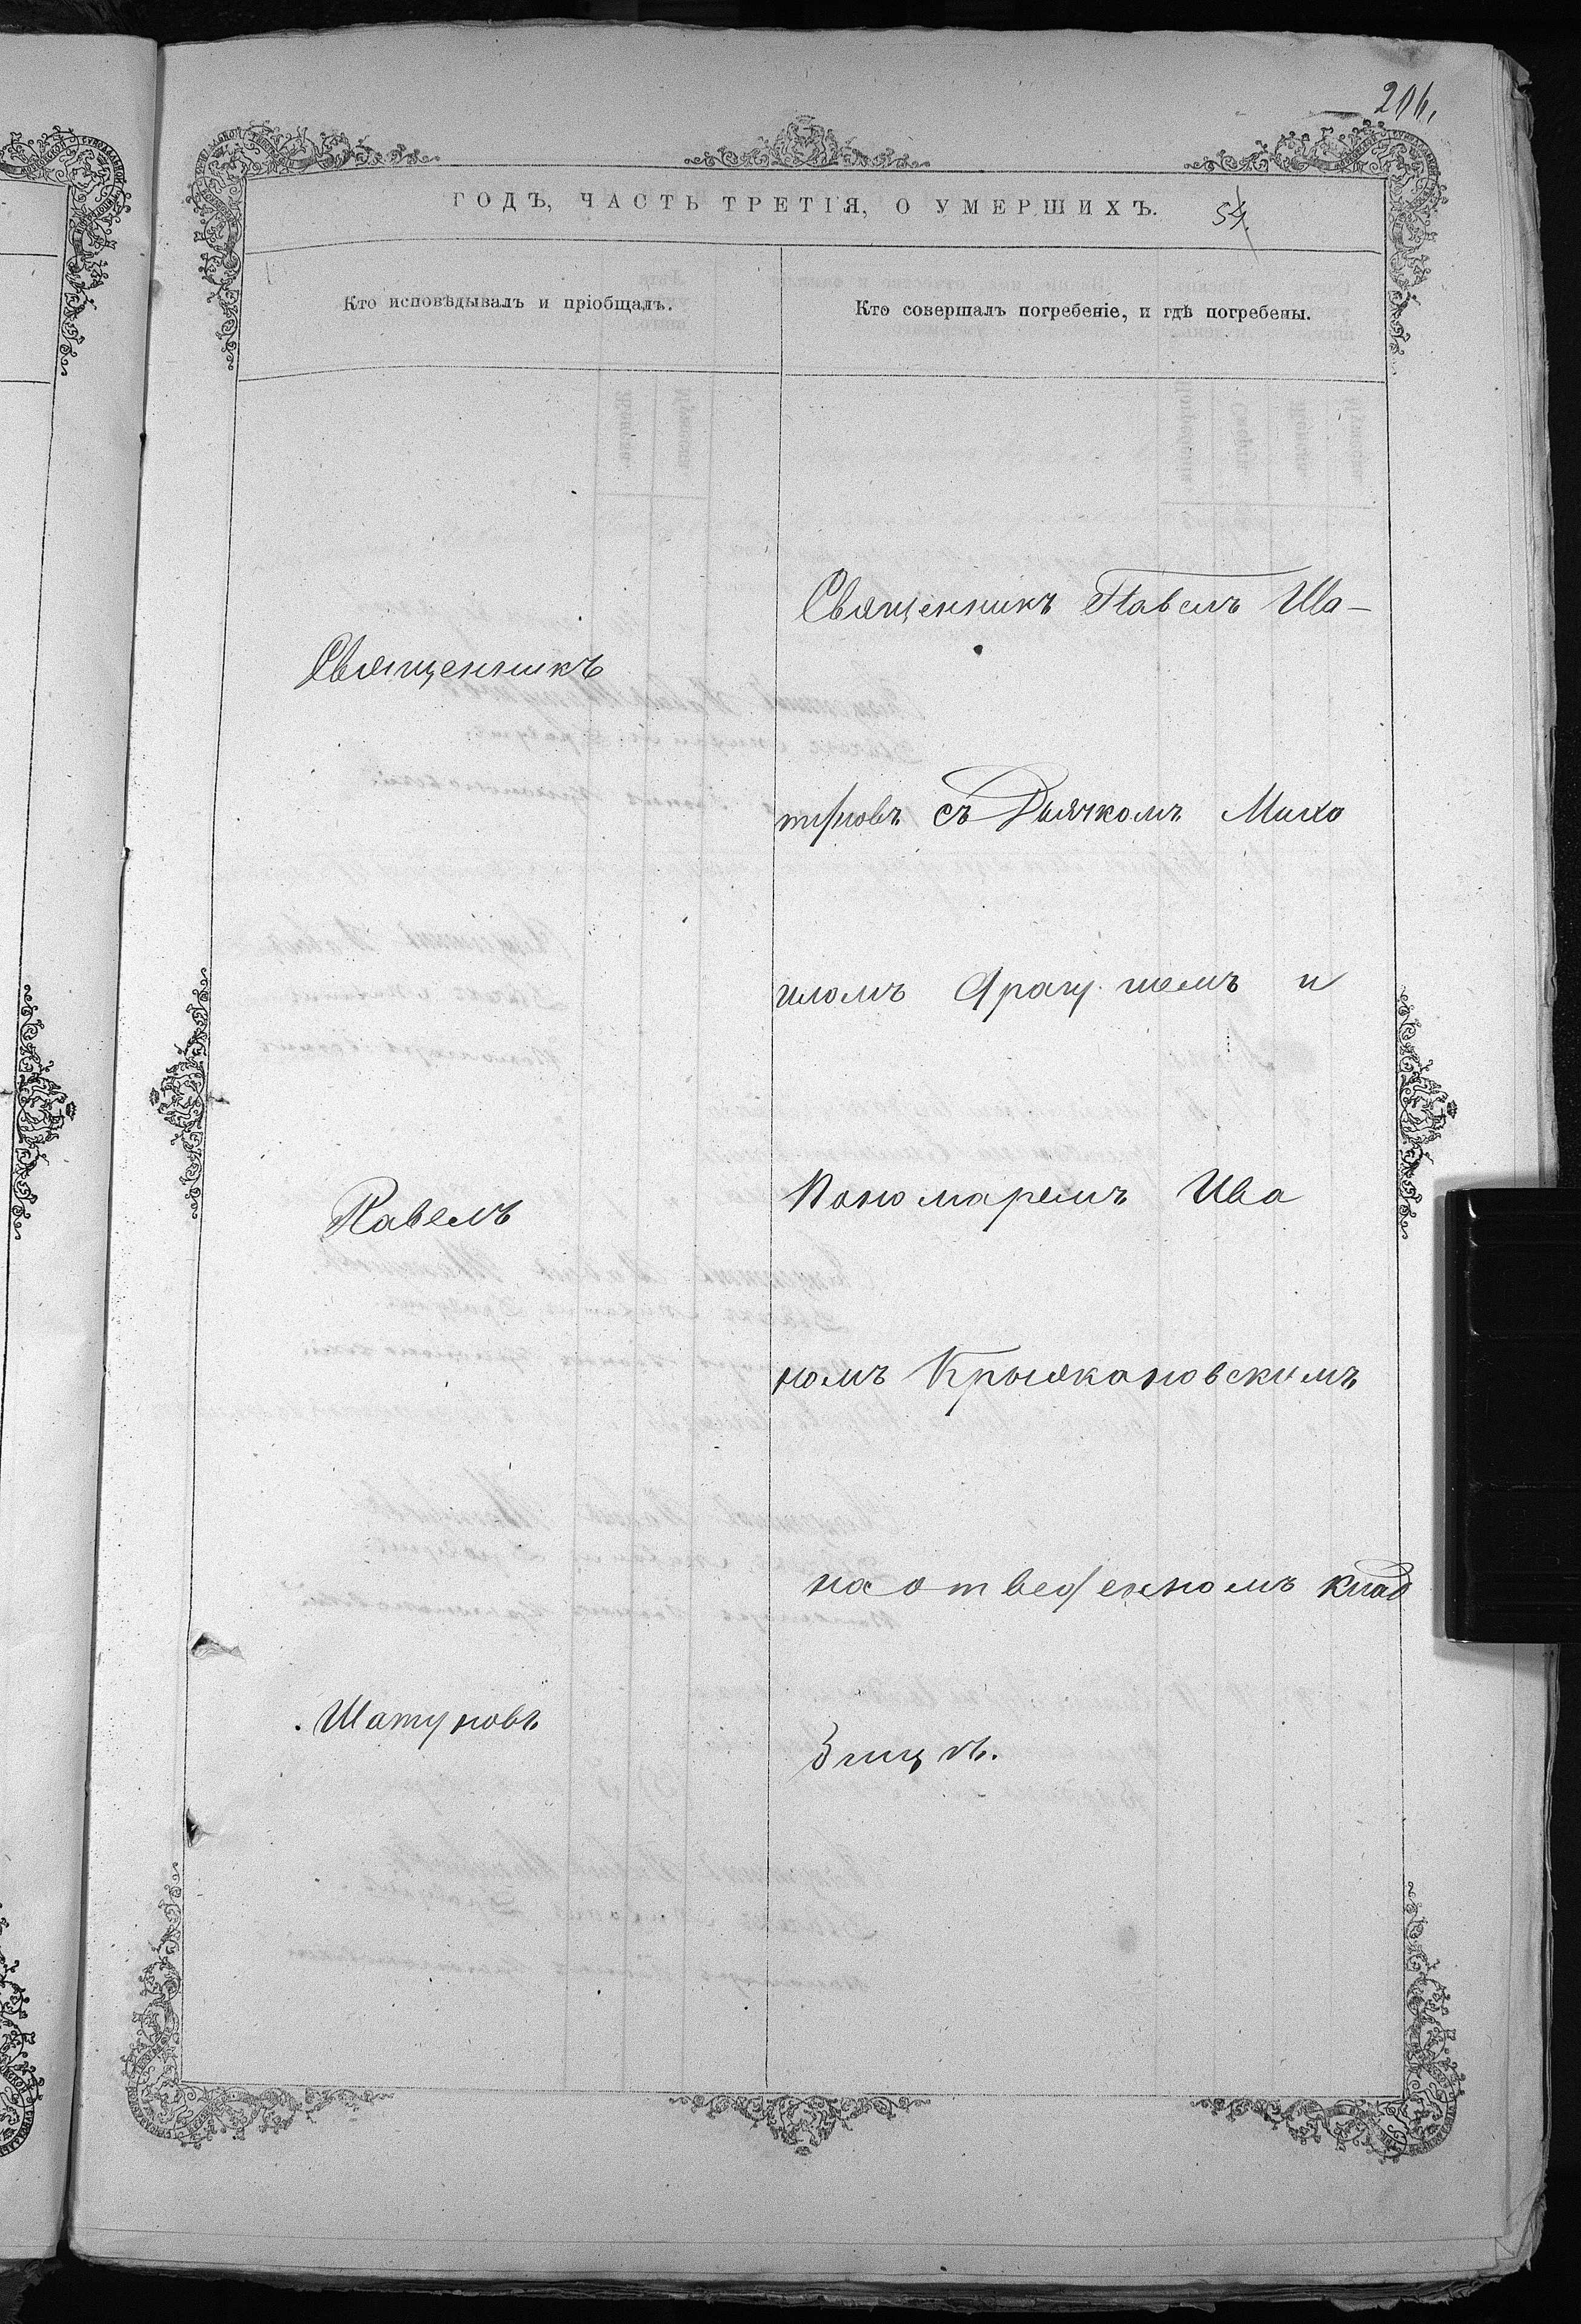 206.
ГОДЪ, ЧАСТЬ ТРЕТІЯ, О УМЕРШИХЪ. 54.
Кто исповѣдывалъ и пріобщалъ.
Кто совершалъ погребеніе, и гдѣ погребены.
Священникъ
Павелъ
Шатуновъ
Священникъ Павелъ Ша-
туновъ съ Дьячкомъ Миха
иломъ и
Пономаремъ Ива
номъ
на отведенномъ клад
бищѣ.